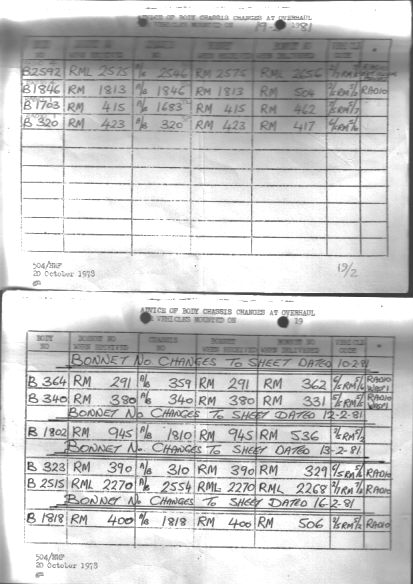 ADVICE OF BODY CHASSIS CHANGES AT OVERHAUL
VEHICLES MOUNTED ON 19- 1981
BODY NO BONNET NO WHEN RECEIVED CHASSIS NO BONNET WHEN RECEIVED BONNET NO WHEN DELIVERED VEHICLE CODE *
B2592 RML 2575 A/B 2546 RM 2575 RM 2656
B1846 RM 1813 A/B 1846 RM 1813 RM 504 RADIO
B1703 RM 415 A/B 1683 RM 415 RM 462
B 320 RM 423 A/B 320 RM 423 RM 417
504/MRF
20 October 1978
19/2
ADVICE OF BODY CHASSIS CHANGES AT OVERHAUL
VEHICLES MOUNTED ON 19
BODY NO BONNET NO WHEN RECEIVED CHASSIS NO BONNET WHEN RECEIVED BONNET NO WHEN DELIVERED VEHICLE CODE *
BONNET No CHANGES TO SHEET DATED 10-2-81
B 364 RM 291 A/B 359 RM 291 RM 362 RADIO
B 340 RM 380 A/B 340 RM 380 RM 331 RADIO
BONNET No CHANGES TO SHEET DATED 12-2-81
B 1802 RM 945 A/B 1810 RM 945 RM 536
BONNET No CHANGES TO SHEET DATED 13-2-81
B 323 RM 390 A/B 310 RM 390 RM 329 RADIO
B 2515 RML 2270 A/B 2554 RML 2270 RML 2268 RADIO
BONNET No CHANGES TO SHEET DATED 16-2-81
B 1818 RM 400 A/B 1818 RM 400 RM 506 RADIO
504/MRF
20 October 1978